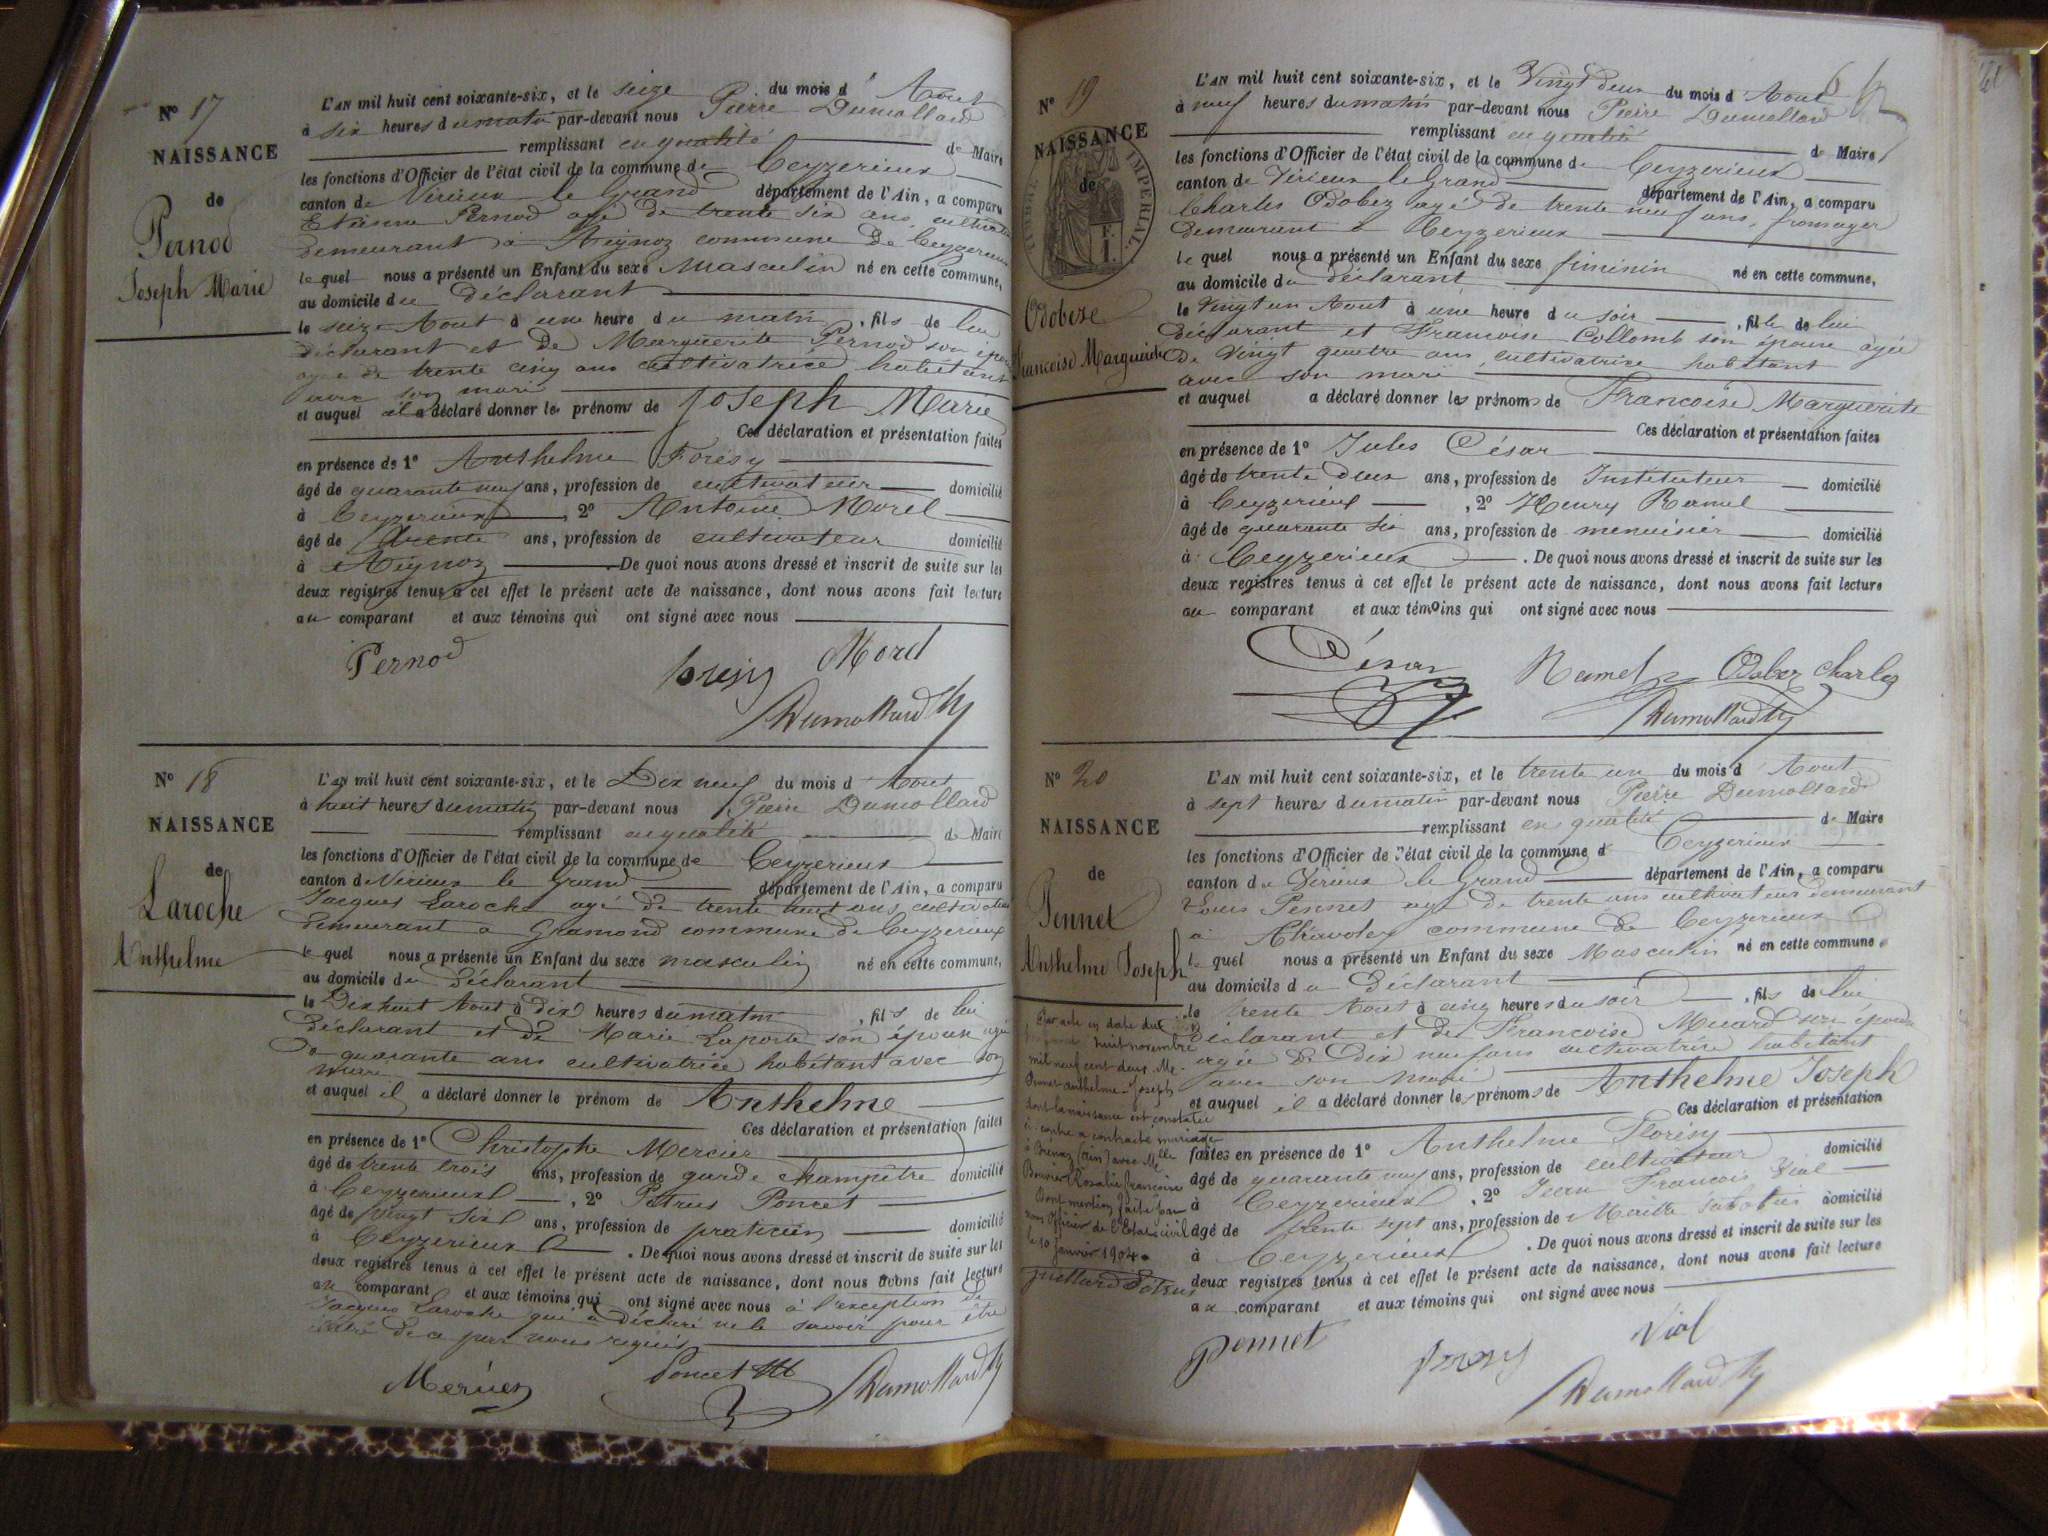 N° 17
NAISSANCE
de
Pernod
Joseph Marie
L'AN mil huit cent soixante-six, et le seize du mois d'Aout
à six heures du matin par-devant nous Pierre Dumollard
remplissant en qualité de Maire
les fonctions d'Officier de l'état civil de la commune de Ceyzerieux
canton de Virieux le Grand département de l'Ain, a comparu
Etienne Pernod agé de trente six ans, cultivateur
demeurant à Aignoz commune de Ceyzerieux
le quel nous a présenté un Enfant du sexe Masculin né en cette commune,
au domicile du Déclarant
le seize Aout à une heure du matin, fils de lui
déclarant et de Marguerite Pernod son épouse
agée de trente cinq ans cultivatrice habitant
avec son mari
et auquel il a déclaré donner les prénoms de Joseph Marie
Ces déclaration et présentation faites
en présence de 1° Anthelme Forésy
âgé de quarante neuf ans, profession de cultivateur domicilié
à Ceyzerieux, 2° Antoine Morel
âgé de trente ans, profession de cultivateur domicilié
à Aignoz. De quoi nous avons dressé et inscrit de suite sur les
deux registres tenus à cet effet le présent acte de naissance, dont nous avons fait lecture
au comparant et aux témoins qui ont signé avec nous
Pernod
Morel
Dumollard
N° 18
NAISSANCE
de
Laroche
Anthelme
L'AN mil huit cent soixante-six, et le Dix neuf du mois d'Aout
à huit heures du matin par-devant nous Pierre Dumollard
remplissant en qualité de Maire
les fonctions d'Officier de l'état civil de la commune de Ceyzerieux
canton de Virieux le Grand département de l'Ain, a comparu
Jacques Laroche agé de trente huit ans cultivateur
demeurant à Gramond commune de Ceyzerieux
le quel nous a présenté un Enfant du sexe masculin né en cette commune,
au domicile du Déclarant
le Dix huit Aout à dix heures du matin, fils de lui
Déclarant et de Marie Laporte son épouse agée
de quarante ans cultivatrice habitant avec son
mari
et auquel il a déclaré donner le prénom de Anthelme
Ces déclaration et présentation faites
en présence de 1° Christophe Mercier
âgé de trente trois ans, profession de garde champêtre domicilié
à Ceyzerieux, 2° Petrus Poncet
âgé de vingt six ans, profession de praticien domicilié
à Ceyzerieux. De quoi nous avons dressé et inscrit de suite sur les
deux registres tenus à cet effet le présent acte de naissance, dont nous avons fait lecture
au comparant et aux témoins qui ont signé avec nous à l'exception de
Jacques Laroche qui a déclaré ne le savoir pour être
illétré de ce par nous requis
Mercier
Poncet
Dumollard
N° 19
NAISSANCE
de
TIMBRE IMPÉRIAL
Odobeze
Francoise Marguerite
L'AN mil huit cent soixante-six, et le Vingt deux du mois d'Aout
à neuf heures du matin par-devant nous Pierre Dumollard
remplissant en qualité de Maire
les fonctions d'Officier de l'état civil de la commune de Ceyzerieux
canton de Virieux le Grand département de l'Ain, a comparu
Charles Odobez agé de trente neuf ans, fromager
demeurant à Ceyzerieux
le quel nous a présenté un Enfant du sexe féminin né en cette commune,
au domicile du déclarant
le Vingt un Aout à une heure du soir, fille de lui
déclarant et Francoise Collomb son épouse agée
de vingt quatre ans, cultivatrice habitant
avec son mari
et auquel a déclaré donner les prénoms de Francoise Marguerite
Ces déclaration et présentation faites
en présence de 1° Jules César
âgé de trente deux ans, profession de Instituteur domicilié
à Ceyzerieux, 2° Henry Ramel
âgé de quarante six ans, profession de menuisier domicilié
à Ceyzerieux. De quoi nous avons dressé et inscrit de suite sur les
deux registres tenus à cet effet le présent acte de naissance, dont nous avons fait lecture
au comparant et aux témoins qui ont signé avec nous
César
Ramel
Odobez Charles
Dumollard
N° 20
NAISSANCE
de
Pennet
Anthelme Joseph
Par acte en date du
huit novembre
mil neuf cent deux, Mr
Pennet Anthelme-Joseph
dont la naissance est constatée
ci-contre a contracté mariage
à Brénaz (ain) avec Melle
Bouvier Rosalie Françoise
Dont mention faite par
nous Officier de l'Etat civil
le 10 Janvier 1904.
L'AN mil huit cent soixante-six, et le trente un du mois d'Aout
à sept heures du matin par-devant nous Pierre Dumollard
remplissant en qualité de Maire
les fonctions d'Officier de l'état civil de la commune d Ceyzerieux
canton de Virieux le Grand département de l'Ain, a comparu
Louis Pennet agé de trente ans cultivateur demeurant
à Chavoley commune de Ceyzerieux
le quel nous a présenté un Enfant du sexe Masculin né en cette commune
au domicile du Déclarant
le trente Aout à cinq heures du soir, fils de lui
Déclarant et de Francoise Micard son épouse
agée de Dix neuf ans cultivatrice habitant
avec son mari
et auquel il a déclaré donner les prénoms de Anthelme Joseph
Ces déclaration et présentation
faites en présence de 1° Anthelme Florésy
âgé de quarante neuf ans, profession de cultivateur domicilié
à Ceyzerieux, 2° Jean Francois Vial
âgé de trente sept ans, profession de Maître sabotier domicilié
à Ceyzerieux. De quoi nous avons dressé et inscrit de suite sur les
deux registres tenus à cet effet le présent acte de naissance, dont nous avons fait lecture
au comparant et aux témoins qui ont signé avec nous
Pennet
Vial
Dumollard